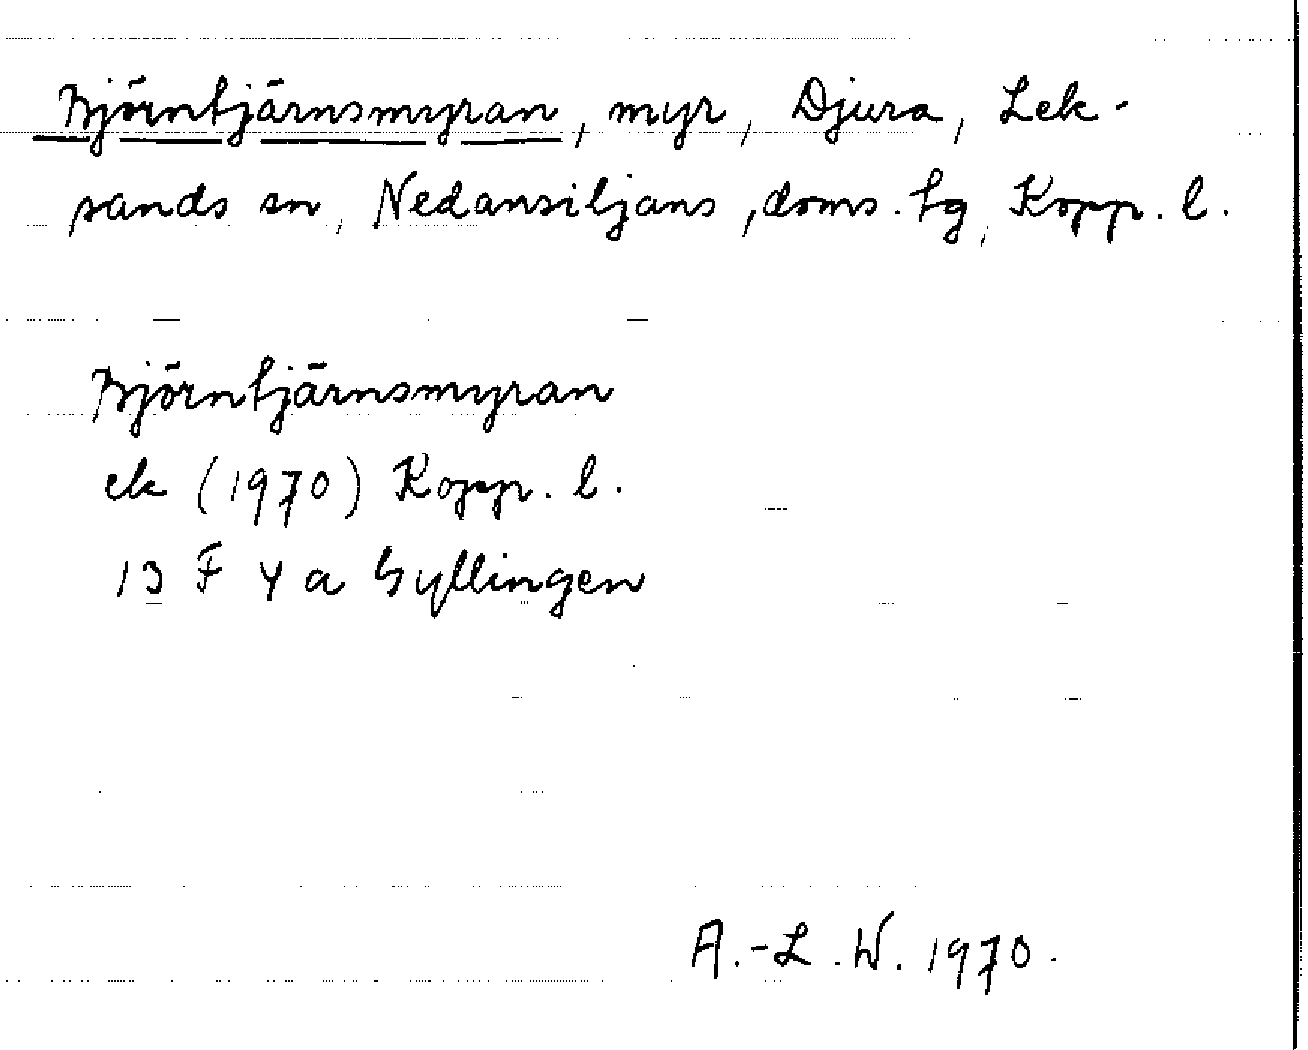 Björntjärnsmyran, myr, Djura, Lek-
sands sn, Nedansiljans, doms. tg, Kopp. l.
Björntjärnsmyran
ek (1970) Kopp. l.
13 F 4 a Gyllingen
A.-L. W. 1970.